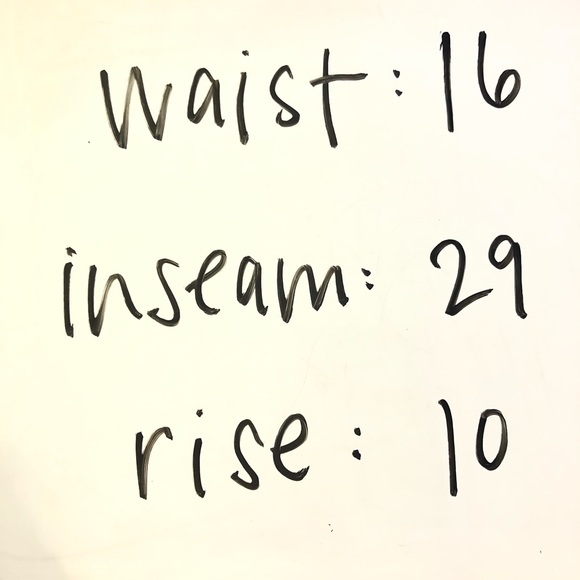 waist: 16
inseam: 29
rise: 10